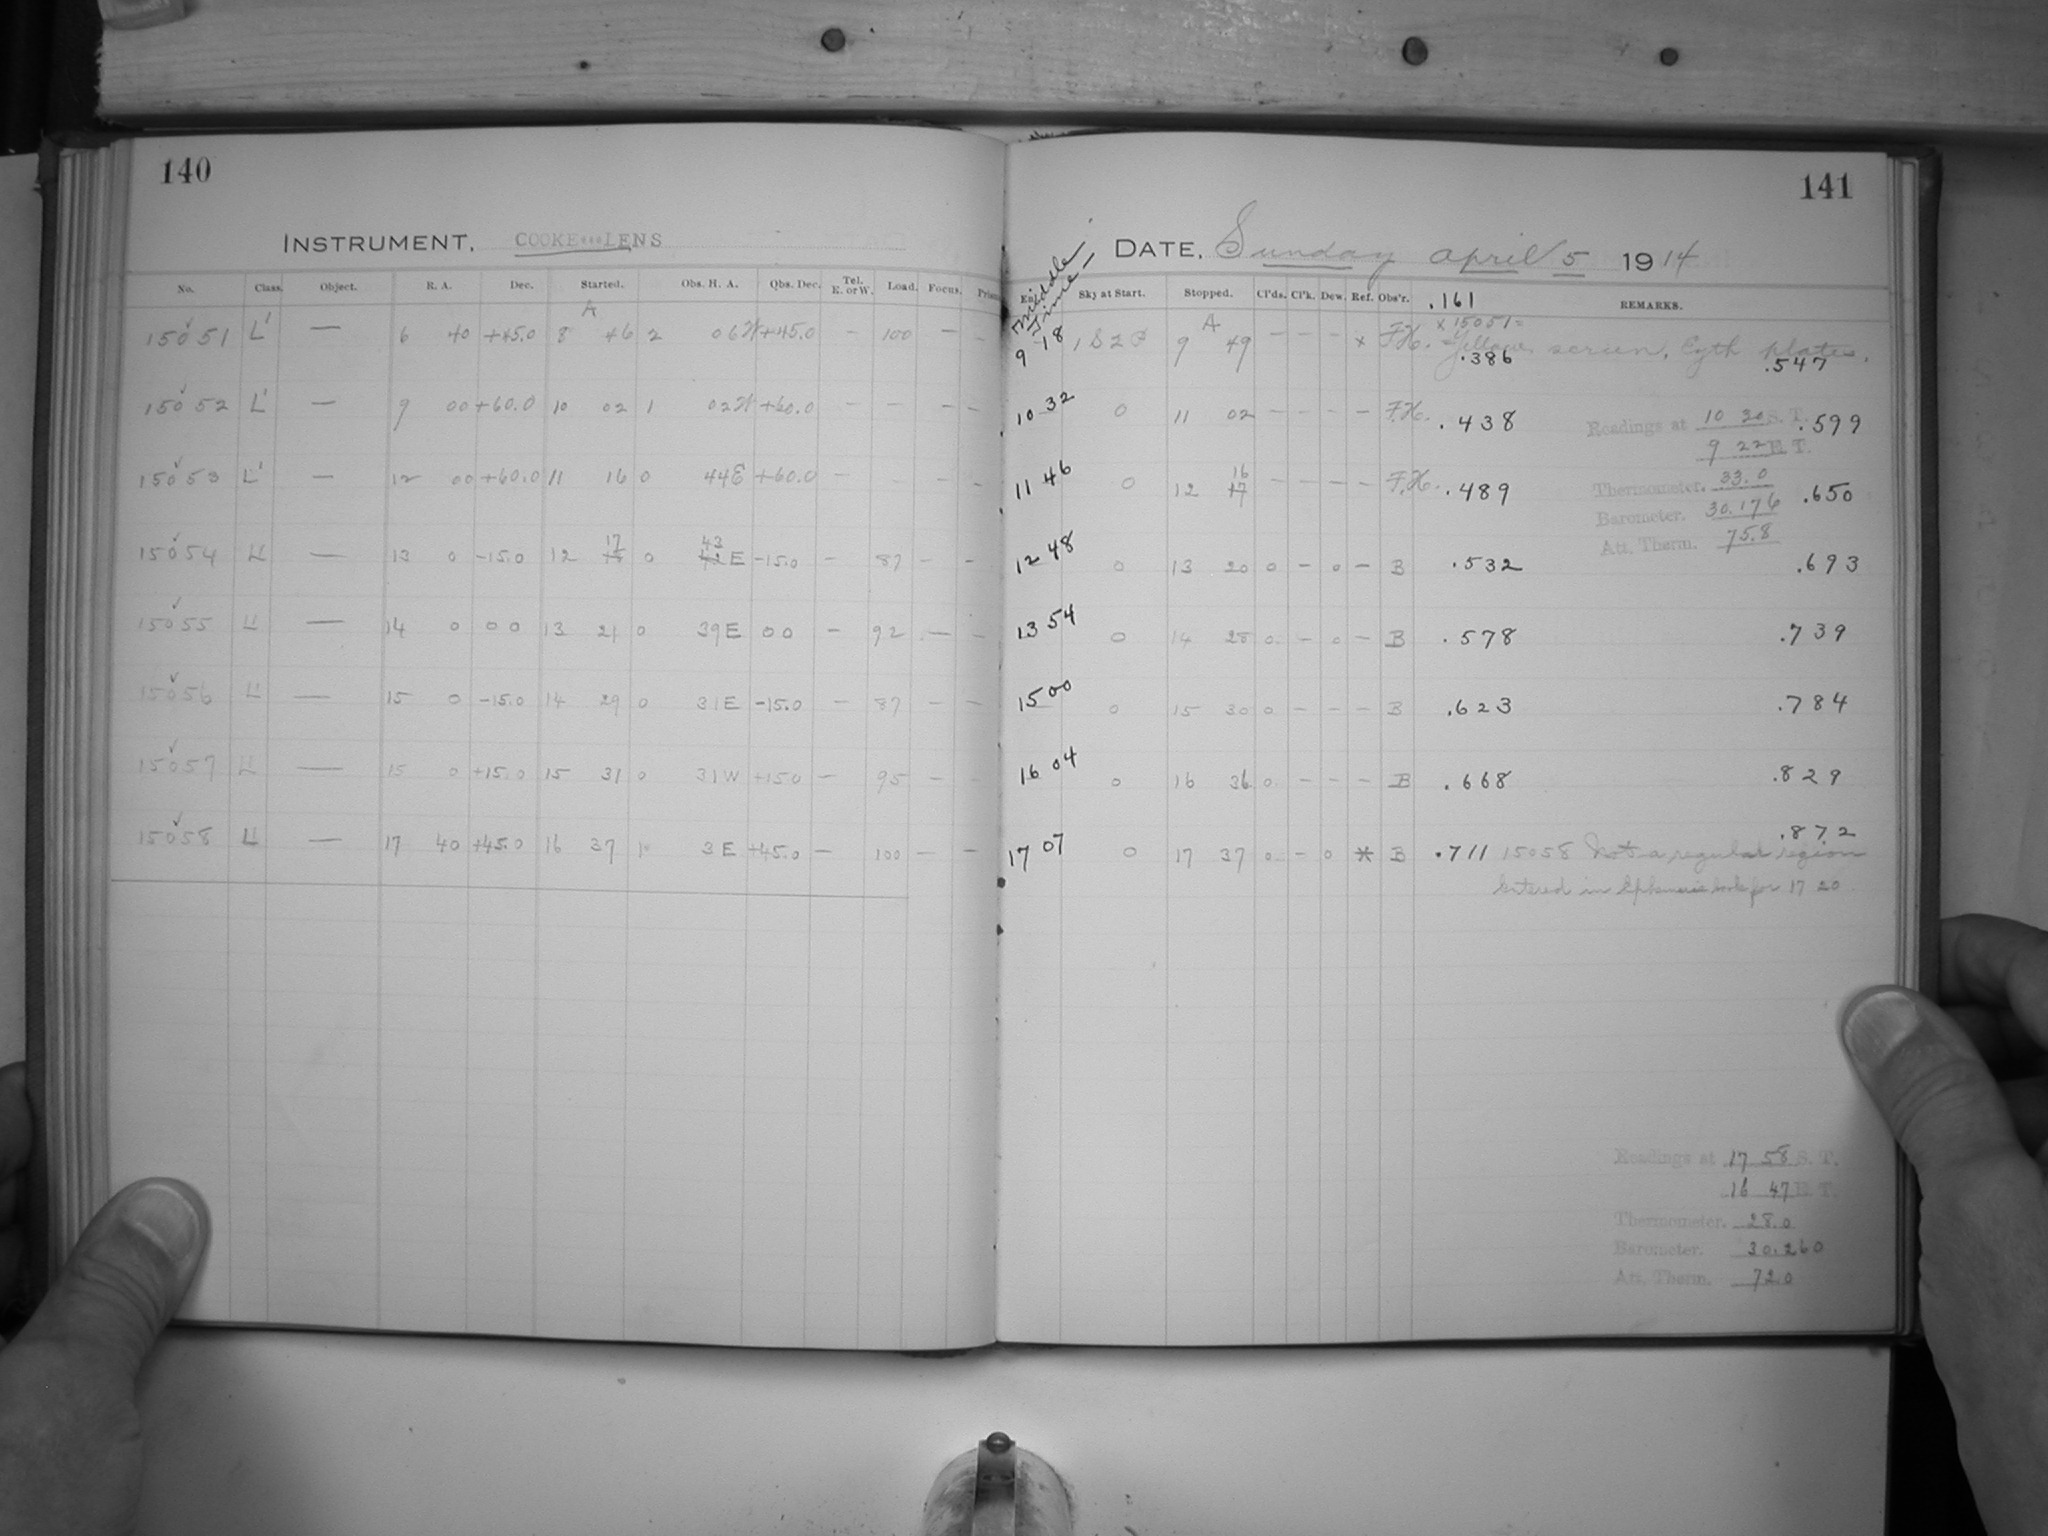 140
INSTRUMENT. COOKE LENS
No. Class. Object. R. A. Dec. Started. Obs. H. A. Obs. Dec. Tel. E. or W. Load. Focus.
A
15051 L' — 6 40 +45.0 8 46 2 06W +45.0 — 100 — —
15052 L' — 9 00 +60.0 10 02 1 02W +60.0 — — — —
15053 L' — 12 00 +60.0 11 16 0 44E +60.0 — — —
17 43
15054 — 13 0 -15.0 12 0 E -15.0 — 87 — —
15055 — 14 0 0 0 13 21 0 39E 0 0 — 92 — —
15056 — 15 0 -15.0 14 29 0 31E -15.0 — 87 — —
15057 — 15 0 +15.0 15 31 0 31W +15.0 — 95 — —
15058 — 17 40 +45.0 16 37 1 3E +45.0 — 100 — —
141
DATE. Sunday April 5 1914
Middle Time
Sky at Start. Stopped. Cl'ds. Cl'k. Dew. Ref. Obs'r. .161 REMARKS.
A × 15051=
9 18 1 S 2 P 9 49 — — — × F.H. Yellow screen, Eyth plates.
.386 .547
10 32 0 11 02 — — — — F.H. .438 Readings at 10 20 S. T. .599
9 22 E. T.
16
11 46 0 12 17 — — — — F.H. .489 Thermometer. 33.0 .650
Barometer. 30.176
Att. Therm. 75.8
12 48 0 13 20 0 — 0 — B .532 .693
13 54 0 14 28 0 — 0 — B .578 .739
15 00 0 15 30 0 — — — B .623 .784
16 04 0 16 36 0 — — — B .668 .829
.872
17 07 0 17 37 0 — 0 * B .711 15058 Not a regular region
Entered in Ephemeris book for 17 20
Readings at 17 58 S. T.
16 47 E. T.
Thermometer. 28.0
Barometer. 30.260
Att. Therm. 72.0